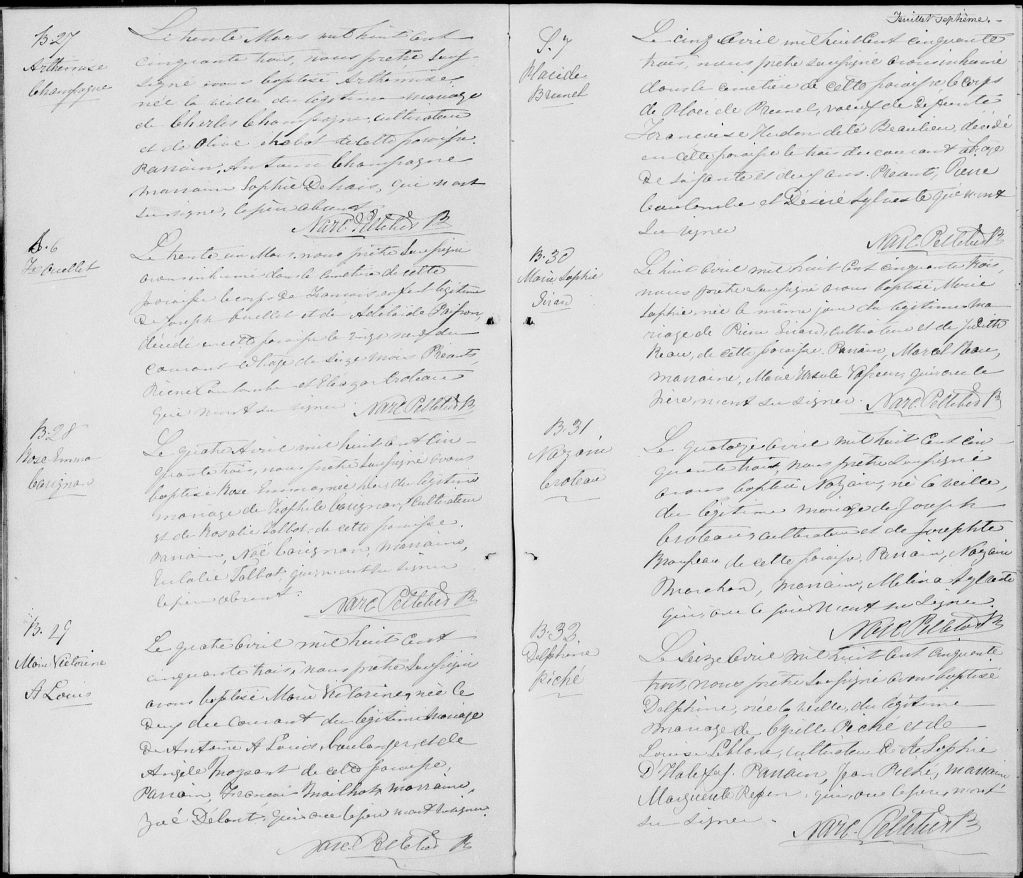 B.27
Arthemise
Champagne
Le trente Mars mil huit cent
cinquante trois, nous prêtre sous-
signé avons baptisé Arthemise,
née la veille du légitime mariage
de Charles Champagne, cultivateur
et de Olive de cette paroisse.
Parrain, Antoine Champagne
marraine Sophie Dehais, qui n'ont
su signer, le père absent.
Narc. Pelletier Ptr
S.6
Ouellet
Le trente un Mars, nous prêtre soussigné
avons inhumé dans le cimetière de cette
paroisse le corps de François enfant légitime
de Joseph Ouellet et de Adélaïde
décédé en cette paroisse le vingt neuf du
courant à l'age de seize mois Présents,
Pierre Coulombe et Croteau
qui n'ont su signer. Narc Pelletier Ptr
B.28
Rose Emma
Carignan
Le quatre Avril mil huit cent cin-
quante trois, nous prêtre soussigné avons
baptisé Rose Emma née hier du légitime
mariage de Théophile Carignan, cultivateur
et de Rosalie Talbot, de cette paroisse.
Parrain, Noé Carignan, marraine,
Eulalie Talbot qui n'ont su signer
le père absent.
Narc Pelletier Ptr
B.29
Marie Victorine
St Louis
Le quatre Avril mil huit cent
cinquante trois, nous prêtre soussigné
avons baptisé Marie Victorine, née le
deux du courant du légitime mariage
de Antoine St Louis, boulanger, et de
Angèle de cette paroisse,
Parrain, François Mailhot, marraine,
Zoé qui, avec le père n'ont su signer.
Narc. Pelletier Ptr
Feuillet septième.
S.7
Placide
Brunel
Le cinq Avril mil huit cent cinquante
trois, nous prêtre soussigné avons inhumé
dans le cimetière de cette paroisse, le corps
de Placide Brunel, veuf de défunte
Françoise Hudon dite Beaulieu, décédé
en cette paroisse le trois du courant à l'age
de soixante et deux ans. Présents, Pierre
Coulombe et Désiré Sylvestre qui n'ont
su signer
Narc Pelletier Ptr
B.30
Marie Sophie
Girard
Le huit Avril mil huit cent cinquante trois
nous prêtre soussigné avons baptisé Marie
Sophie née le même jour du légitime ma-
riage de Pierre Girard, cultivateur et de Judith
de cette paroisse. Parrain, Marcel
marraine, Marie Ursule qui avec le
père n'ont su signer. Narc Pelletier Ptr
B.31
Nazaire
Croteau
Le quatorze Avril mil huit cent cin-
quante trois, nous prêtre soussigné
avons baptisé Nazaire, né la veille,
du légitime mariage de Joseph
Croteau, cultivateur et de Josephte
de cette paroisse, Parrain, Nazaire
marraine, Melina Sylvestre
qui avec le père n'ont su signer.
Narc Pelletier Ptr
B.32
Delphine
Piché
Le Seize Avril mil huit cent cinquante
trois, nous prêtre soussigné avons baptisé
Delphine, née la veille, du légitime
mariage de Cyrille Piché et de
Louise Leblanc, cultivateur de Ste Sophie
D'Halifax. Parrain, Jean Piché, marraine
Marguerite qui, avec le père, n'ont
su signer.
Narc. Pelletier Ptr